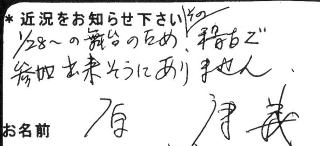 *近況をお知らせ下さい その
1/28〜の舞台のため、稽古で
参加出来そうにありません。
お名前 原